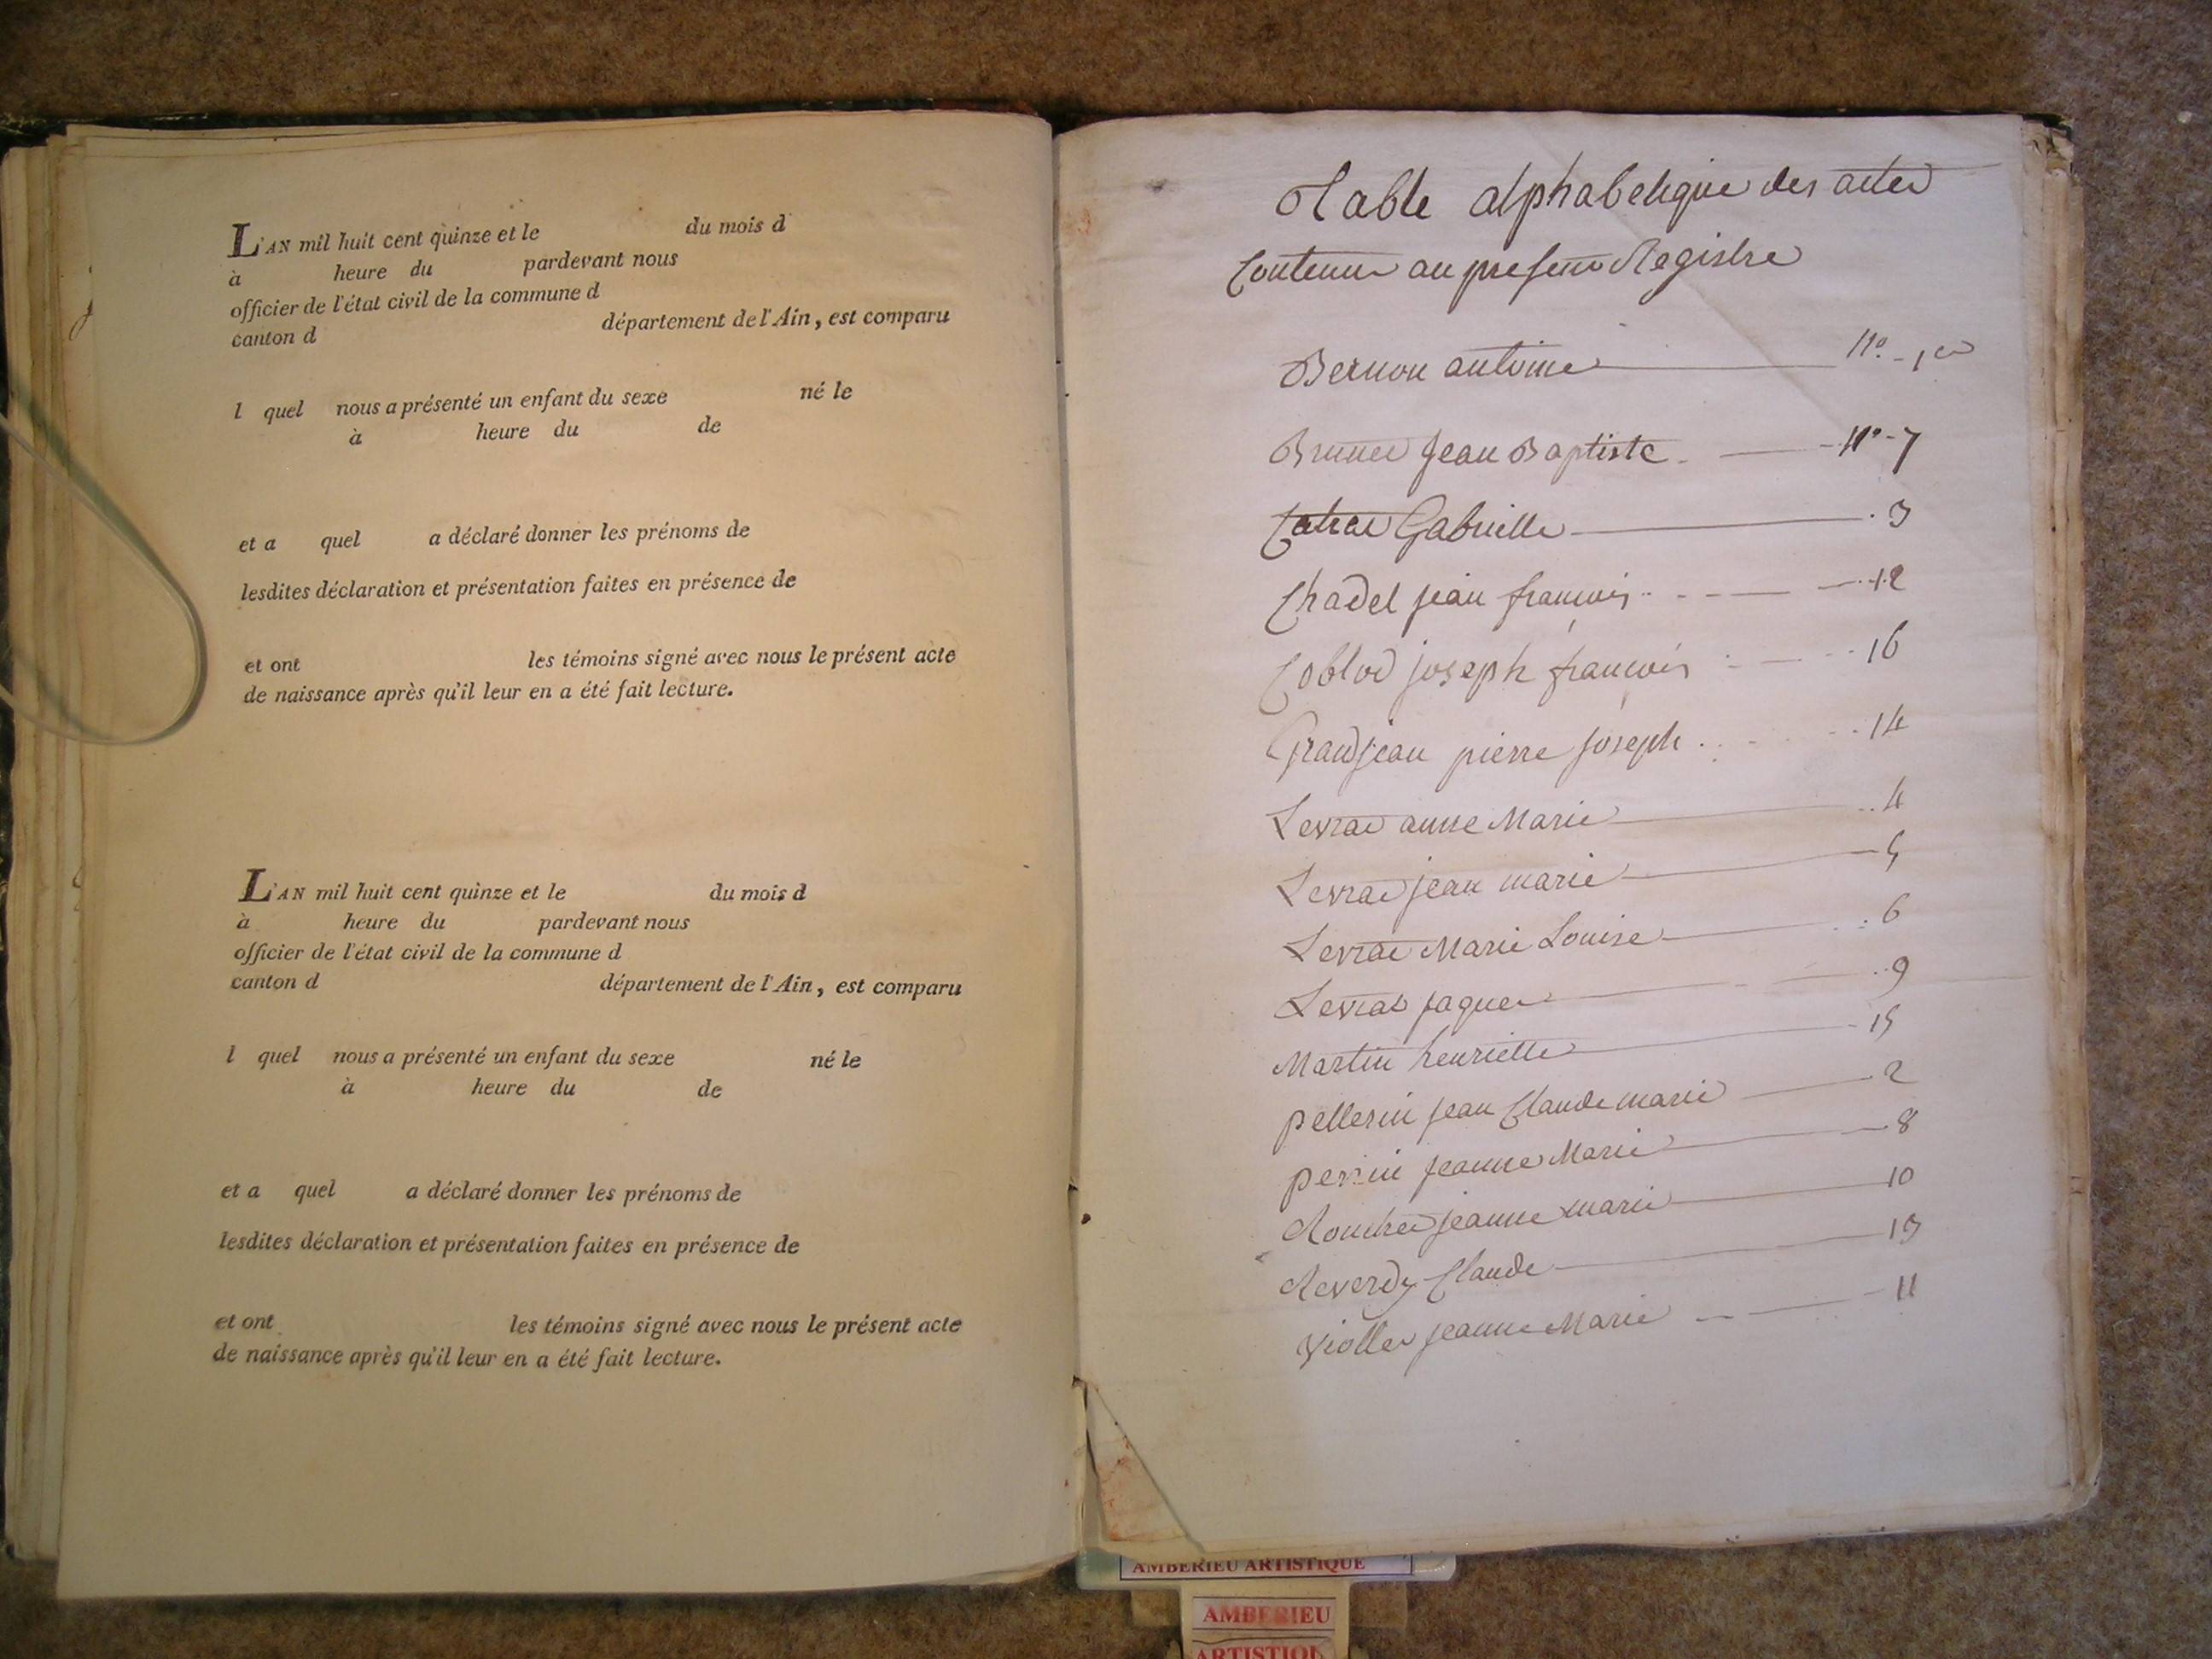 L'AN mil huit cent quinze et le du mois d
à heure du pardevant nous
officier de l'état civil de la commune d
canton d département de l'Ain, est comparu
l quel nous a présenté un enfant du sexe né le
à heure du de
et a quel a déclaré donner les prénoms de
lesdites déclaration et présentation faites en présence de
et ont les témoins signé avec nous le présent acte
de naissance après qu'il leur en a été fait lecture.
L'AN mil huit cent quinze et le du mois d
à heure du pardevant nous
officier de l'état civil de la commune d
canton d département de l'Ain, est comparu
l quel nous a présenté un enfant du sexe né le
à heure du de
et a quel a déclaré donner les prénoms de
lesdites déclaration et présentation faites en présence de
et ont les témoins signé avec nous le présent acte
de naissance après qu'il leur en a été fait lecture.
Table alphabetique des actes
Contenu au present Registre
Bernon antoine no 1er
Brunet Jean Baptiste no 7
Gabrielle 3
Chadel jean francois 12
Coblod joseph francois 16
Grandjean pierre joseph 14
Levrat anne Marie 4
Levrat jean marie 5
Levrat Marie Louise 6
Levrat jaques 9
Martin henriette 15
pellerin jean Claude marie 2
perrin jeanne Marie 8
jeanne marie 10
Reverdy Claude 13
Viollet jeanne Marie 11
AMBERIEU ARTISTIQUE
AMBERIEU